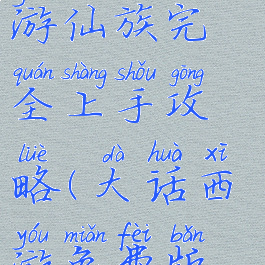 游仙族完
quán shàng shǒu gōng
全上手攻
lüè dà huà xī
略(大话西
yóu miǎn fèi bǎn
游免费版